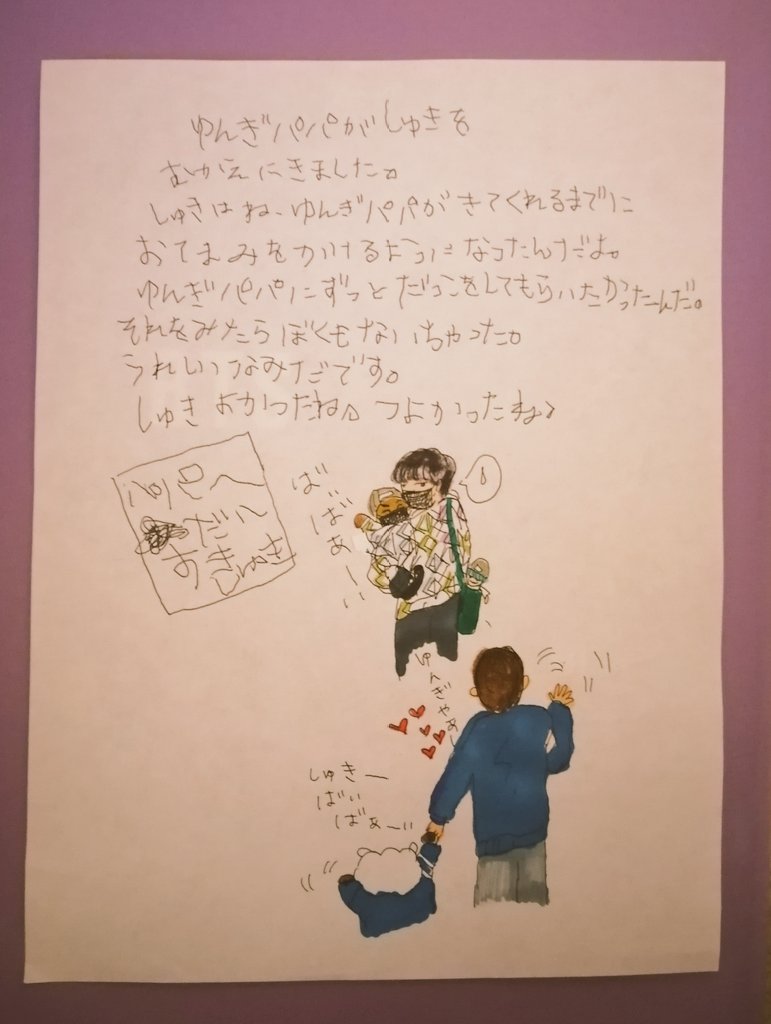 ゆんぎパパがしゅきを
むかえにきました。
しゅきはね、ゆんぎパパがきてくれるまでに
おてまみをかけるようになったんだよ。
ゆんぎパパにずっとだっこをしてもらいたかったんだ。
それをみたらぼくもないちゃった。
うれしいなみだです。
しゅきよかったね。つよかったね。
パパへ
だい
すき
しゅき
ばいばぁーい
ゆんぎやぁー
しゅきー
ばい
ばぁーい